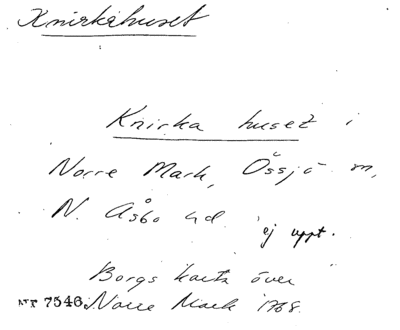 Knirkahuset
Knirka huset i
Norre Mark, Össjö sn,
N. Åsbo hd. ej uppt.
Borgs karta över
7546. Norre Mark 1768.